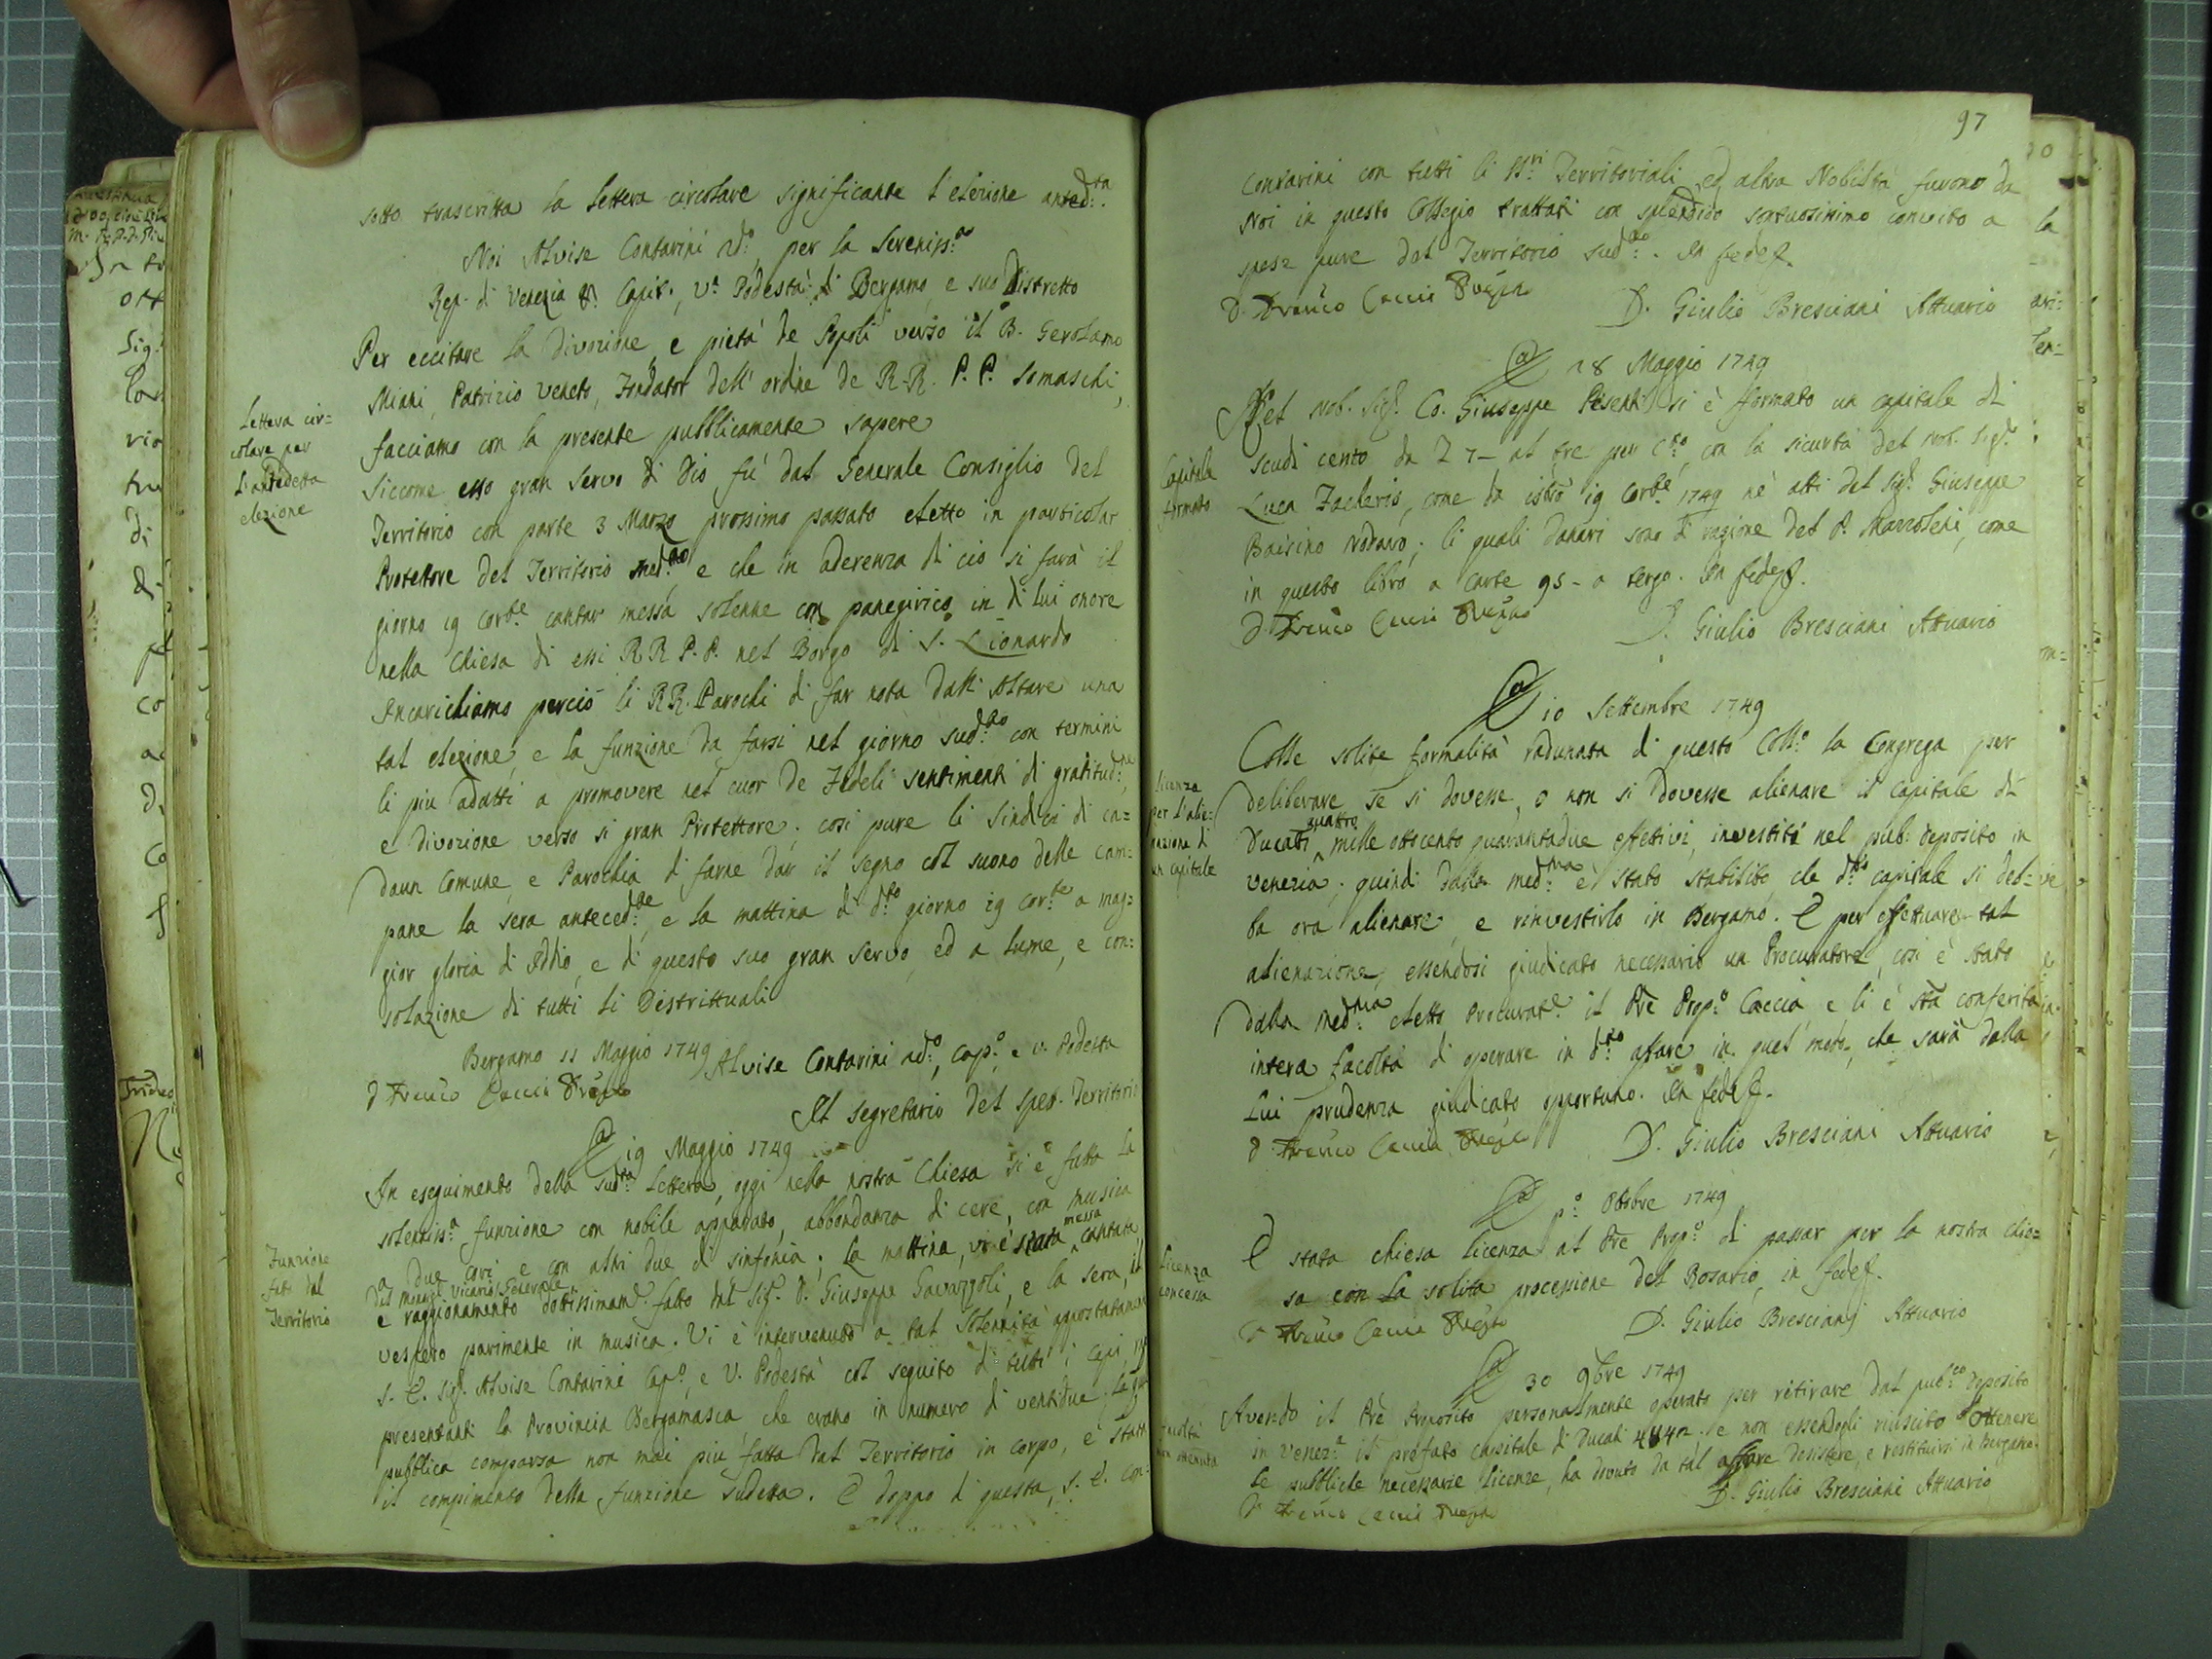 sotto trascritta la lettera circolare significante l'elezione anted:ta
Noi Alvise Contarini ad:o per la Sereniss:a
Rep. di Venezia &. Capit:, V.a Podestà di Bergamo, e suo Distretto
Per eccitare la divozione, e pietà de Popoli verso il B. Gerolamo
Miani, Patrizio Veneto, Fondator dell'ordine de R.R. P.P. Somaschi,
facciamo con la presente pubblicamente sapere
Lettera cir=
colare per
l'antedetta
elezione
Siccome esso gran Servo di Dio fù dal Generale Consiglio del
Territorio con parte 3 Marzo prossimo passato eletto in particolar
Protettore del Territorio med:mo e che in aderenza di ciò si farà il
giorno 19 corr:te cantar messa solenne con panegirico in di lui onore
nella Chiesa di essi RR P.P. nel Borgo di S. Lionardo
Incarichiamo perciò li RR. Parochi di far nota dall'Altare una
tal elezione, e la funzione da farsi nel giorno sud:to con termini
li piu adatti a promovere nel cuor de Fedeli sentimenti di gratitud:ne
e divozione verso si gran Protettore; così pure li Sindici di ca=
daun Comune, e Parochia di farne dar il segno col suono delle cam=
pane la sera anteced:te, e la mattina di d:to giorno 19 cor:te a mag=
gior gloria di Iddio, e di questo suo gran Servo, ed a lume, e con=
solazione di tutti li Distrittuali
Bergamo 11 Maggio 1749 Alvise Contarini ad:o, Cap:o, e v. Podesta
D Franco Caccia
Il segretario del spet. Territorio
19 Maggio 1749
In eseguimento della sud:ta Lettera, oggi nella nostra Chiesa si è fatta la
solenniss:a funzione con nobile apparato, abbondanza di cere, con musica
a due cori e con altri due di sinfonia; la mattina, vi è stata messa cantata
Funzione
fatta dal
Territorio
dal monsig.r Vicario Generale
e raggionamento dottissimam:e fatto dal Sig.r D. Giuseppe, e la sera, il
vespero parimente in musica. Vi è intervenuto a tal solennità appostatamen
S. E. Sig.r Alvise Contarini Cap:o e V. Podestà col seguito di tutti i capi, rap
presentanti la Provincia Bergamasca che erano in numero di ventidue; la
pubblica comparsa non mai più fatta dal Territorio in corpo, è stata
il compimento della funzione sudetta. E doppo di questa, S. E. Con=
97
Contarini con tutti li SS:ri Territoriali, ed altra Nobiltà furono da
Noi in questo Collegio trattati con splendido sontuosissimo convito a
spese pure del Territorio sud:to. In fede &.
D. Franco Caccia
D. Giulio Bresciani Attuario
28 Maggio 1749
Capitale
formato
Nel Nob. Sig.r Co. Giuseppe Pesenti si è formato un capitale di
scudi cento da L 7– al tre per C:to, con la sicurtà del Nob. Sig.r
Luca, come da 19 Corr.te 1749 nè atti del Sig.r Giuseppe
Baisino Nodaro; li quali danari sono di ragione del P. Marzoleni, come
in questo libro a carte 95– a tergo. In fede &.
D Franco Caccia
D. Giulio Bresciani Attuario
10 Settembre 1749
Licenza
per l'alie=
nazione di
un capitale
Colle solite formalità radunata di questo Coll:o la Congrega per
deliberare se si dovesse, o non si dovesse alienare il capitale di
Ducati quattro mille ottocento quarantadue effettivi, investiti nel pub: deposito in
Venezia; quindi dalla med:ma è stato stabilito che d:to capitale si deb=
ba ora alienare, e rinvestirlo in Bergamo. E per effettuare tal
alienazione, essendosi giudicato necessario un Procuratore, così è stato
dalla med:ma eletto Procurat:e il Pre Prop:o Caccia e li è sta conferita
intera facoltà di operare in d:to affare in quel modo, che sarà dalla
lui prudenza giudicato opportuno. In fede &.
D. Franco Caccia
D. Giulio Bresciani Attuario
p:o Ottobre 1749
Licenza
concessa
È stata chiesa licenza al Pre Prop:o di passar per la nostra Chie=
sa con la solita processione del Rosario, in fede &.
D. Franco Caccia
D. Giulio Bresciani Attuario
30 9bre 1749
facoltà
non ottenuta
Avendo il Prè Proposito personalmente operato per ritirare dal pub:co deposito
in Venez:a il prefato capitale di Ducati 4842. e non essendogli riuscito ottenere
le pubbliche necessarie licenze, ha dovuto da tal affare desistere, e restituirsi in Bergamo.
D. Giulio Bresciani Attuario
D. Franco Caccia